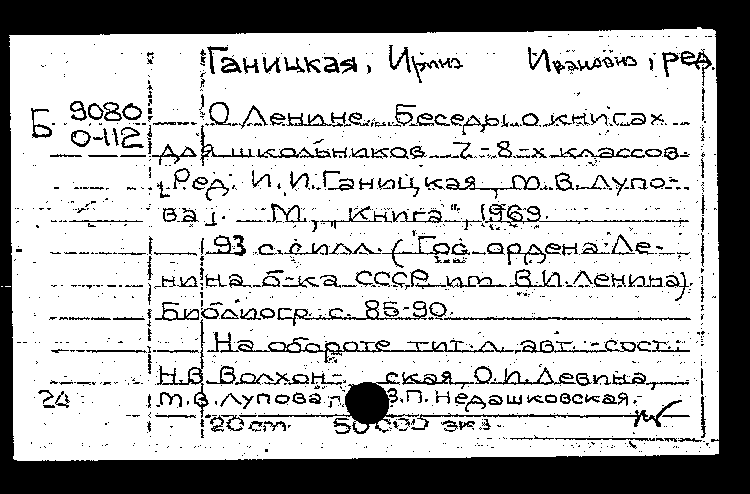 Ганицкая, Ирина Ивановна, ред.
Б 9080
0-112
О Ленине. Беседы о книгах
для школьников 7-8-х классов.
[Ред. И.И. Ганицкая, М.В. Лупо-
ва]. М., "Книга", 1969.
93 с. с илл. (Гос. ордена Ле-
нина б-ка СССР им. В.И. Ленина)
Библиогр.: с. 85-90.
На обороте тит. л. авт.-сост.:
Н.В. Волхон- ская, О.И. Левина,
24 М.В. Лупова, В.П. Недашковская.
20 см. 50 000 экз.